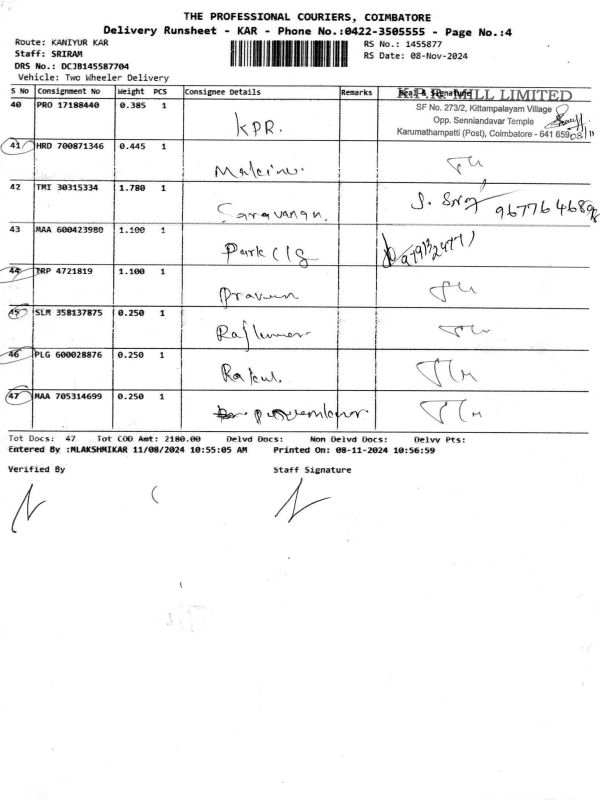 THE PROFESSIONAL COURIERS, COIMBATORE
Delivery Runsheet - KAR - Phone No.:0422-3505555 - Page No.:4
Route: KANIYUR KAR
Staff: SRIRAM
DRS No.: DCJB145587704
Vehicle: Two Wheeler Delivery
RS No.: 1455877
RS Date: 08-Nov-2024
S No Consignment No Weight PCS Consignee Details Remarks Seal & Signature
MILL LIMITED
SF No. 273/2, Kittampalayam Village
Opp. Senniandavar Temple
Karumathampatti (Post), Coimbatore - 641 659
40 PRO 17188440 0.385 1 KPR.
41 HRD 700871346 0.445 1
42 TMI 30315334 1.780 1 Saravanan.
43 MAA 600423980 1.100 1 Park clg
44 TRP 4721819 1.100 1 Praveen
45 SLM 358137875 0.250 1 Rajkumar
46 PLG 600028876 0.250 1
47 MAA 705314699 0.250 1
Tot Docs: 47 Tot COD Amt: 2180.00 Delvd Docs: Non Delvd Docs: Delvv Pts:
Entered By :MLAKSHMIKAR 11/08/2024 10:55:05 AM Printed On: 08-11-2024 10:56:59
Verified By Staff Signature